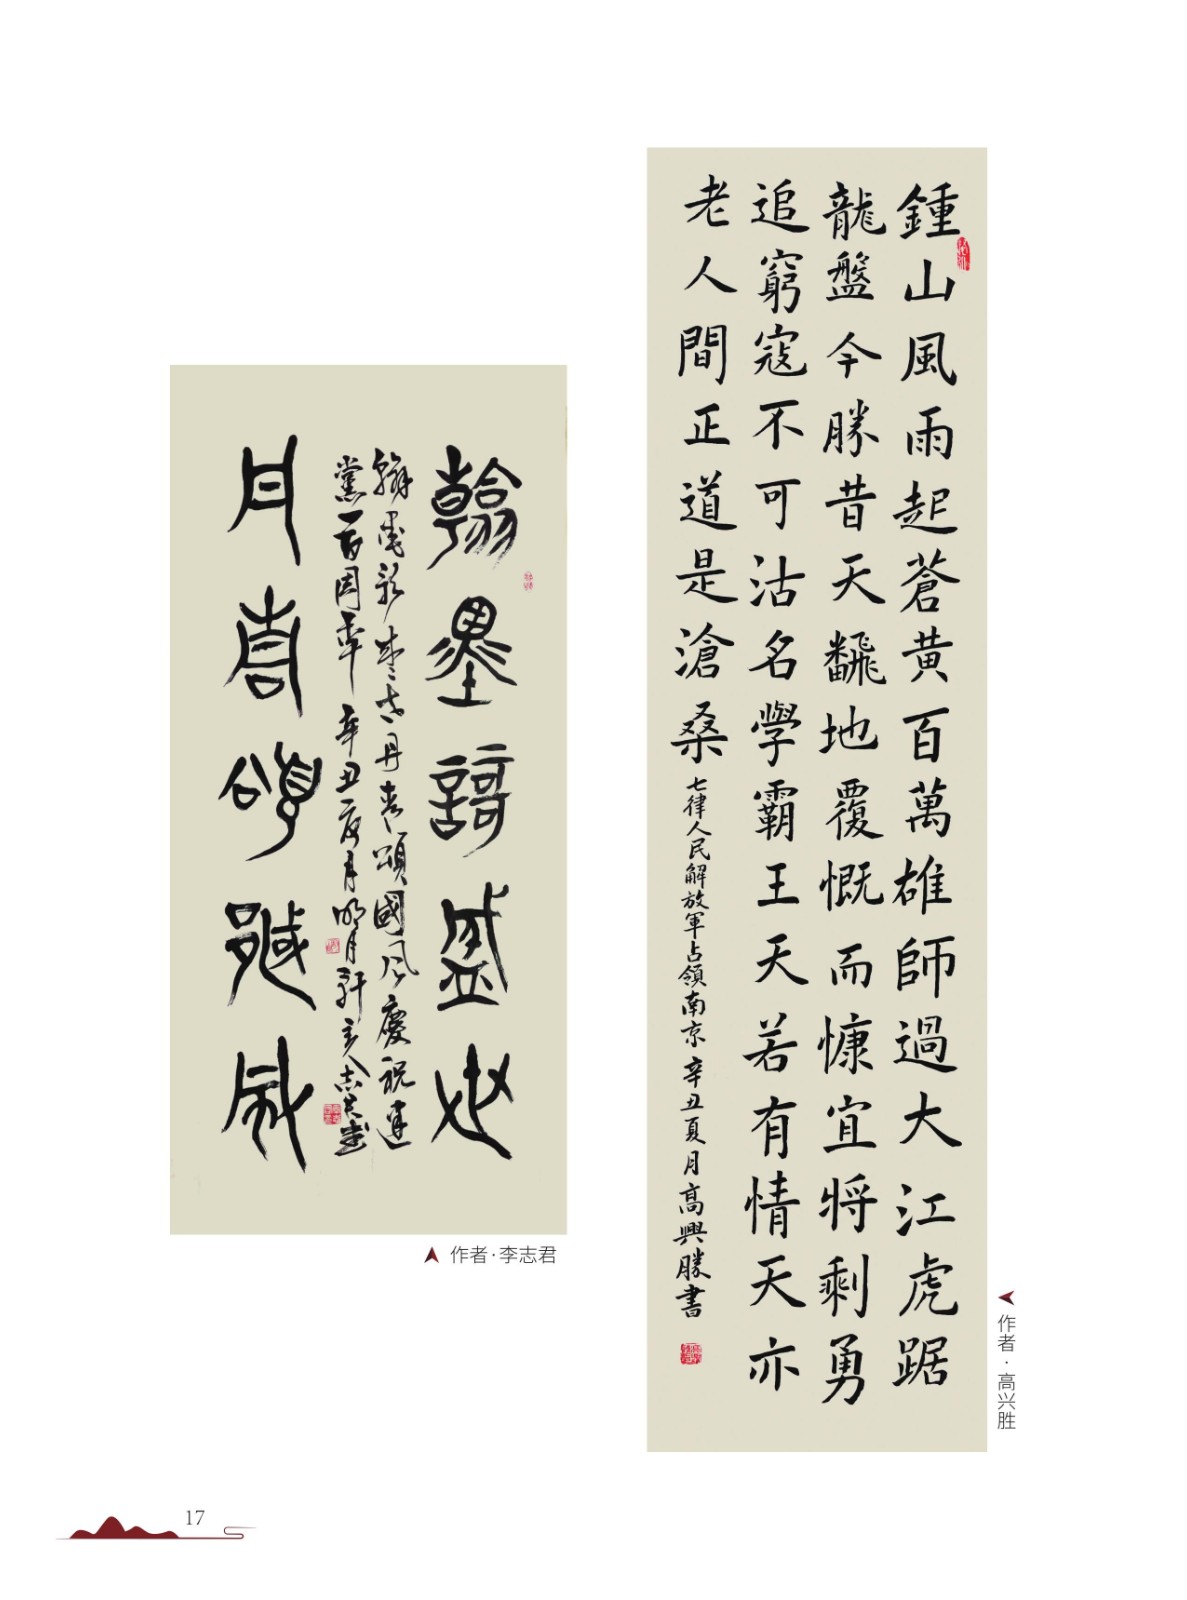 翰墨謌盛世
丹青頌國風
翰墨歌盛世丹青頌國風慶祝建
黨百周年 辛丑夏月明月軒主人志君書
作者·李志君
鍾山風雨起蒼黄百萬雄師過大江虎踞
龍盤今勝昔天飜地覆慨而慷宜將剩勇
追窮寇不可沽名學霸王天若有情天亦
老人間正道是滄桑 七律人民解放軍占領南京 辛丑夏月高興勝書
作者·高兴胜
17